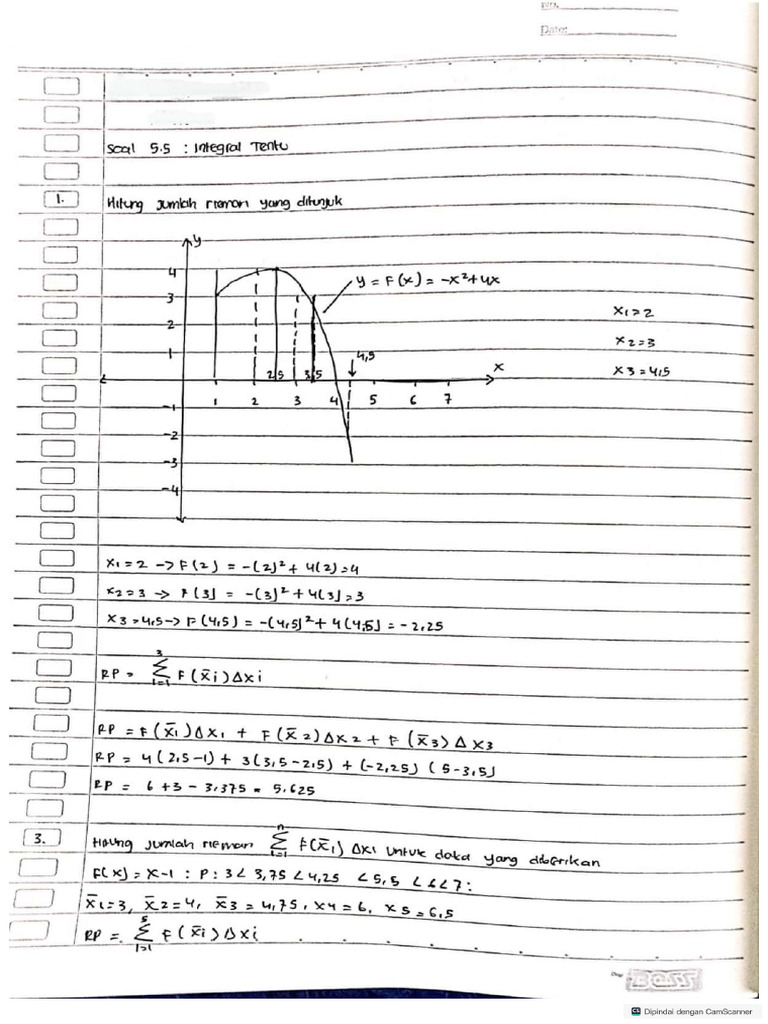 No.
Date:
Soal 5.5 : Integral Tentu
1. Hitung Jumlah rieman yang ditunjuk
y
4
3
2
1
-1
-2
-3
-4
1 2 3 4 5 6 7
2,5 3,5
4,5
x
y = F(x) = -x² + 4x
x1=2
x2=3
x3=4,5
x1=2 -> F(2) = -(2)² + 4(2)=4
x2=3 -> F(3) = -(3)² + 4(3)=3
x3=4,5 -> F(4,5) = -(4,5)² + 4(4,5) = -2,25
RP = 3 Σ i=1 F(x̄i)Δxi
RP = F(x̄1)Δx1 + F(x̄2)Δx2 + F(x̄3)Δx3
RP = 4(2,5-1) + 3(3,5-2,5) + (-2,25)(5-3,5)
RP = 6+3-3,375 = 5,625
3. Hitung Jumlah rieman n Σ i=1 F(x̄1) Δx1 untuk data yang diberikan
F(x) = x-1 : P: 3< 3,75 < 4,25 < 5,5 < 6 < 7 :
x̄1=3, x̄2=4, x̄3=4,75, x4=6, x5=6,5
RP = 5 Σ i=1 F(x̄i)Δxi
BOSS
CS Dipindai dengan CamScanner